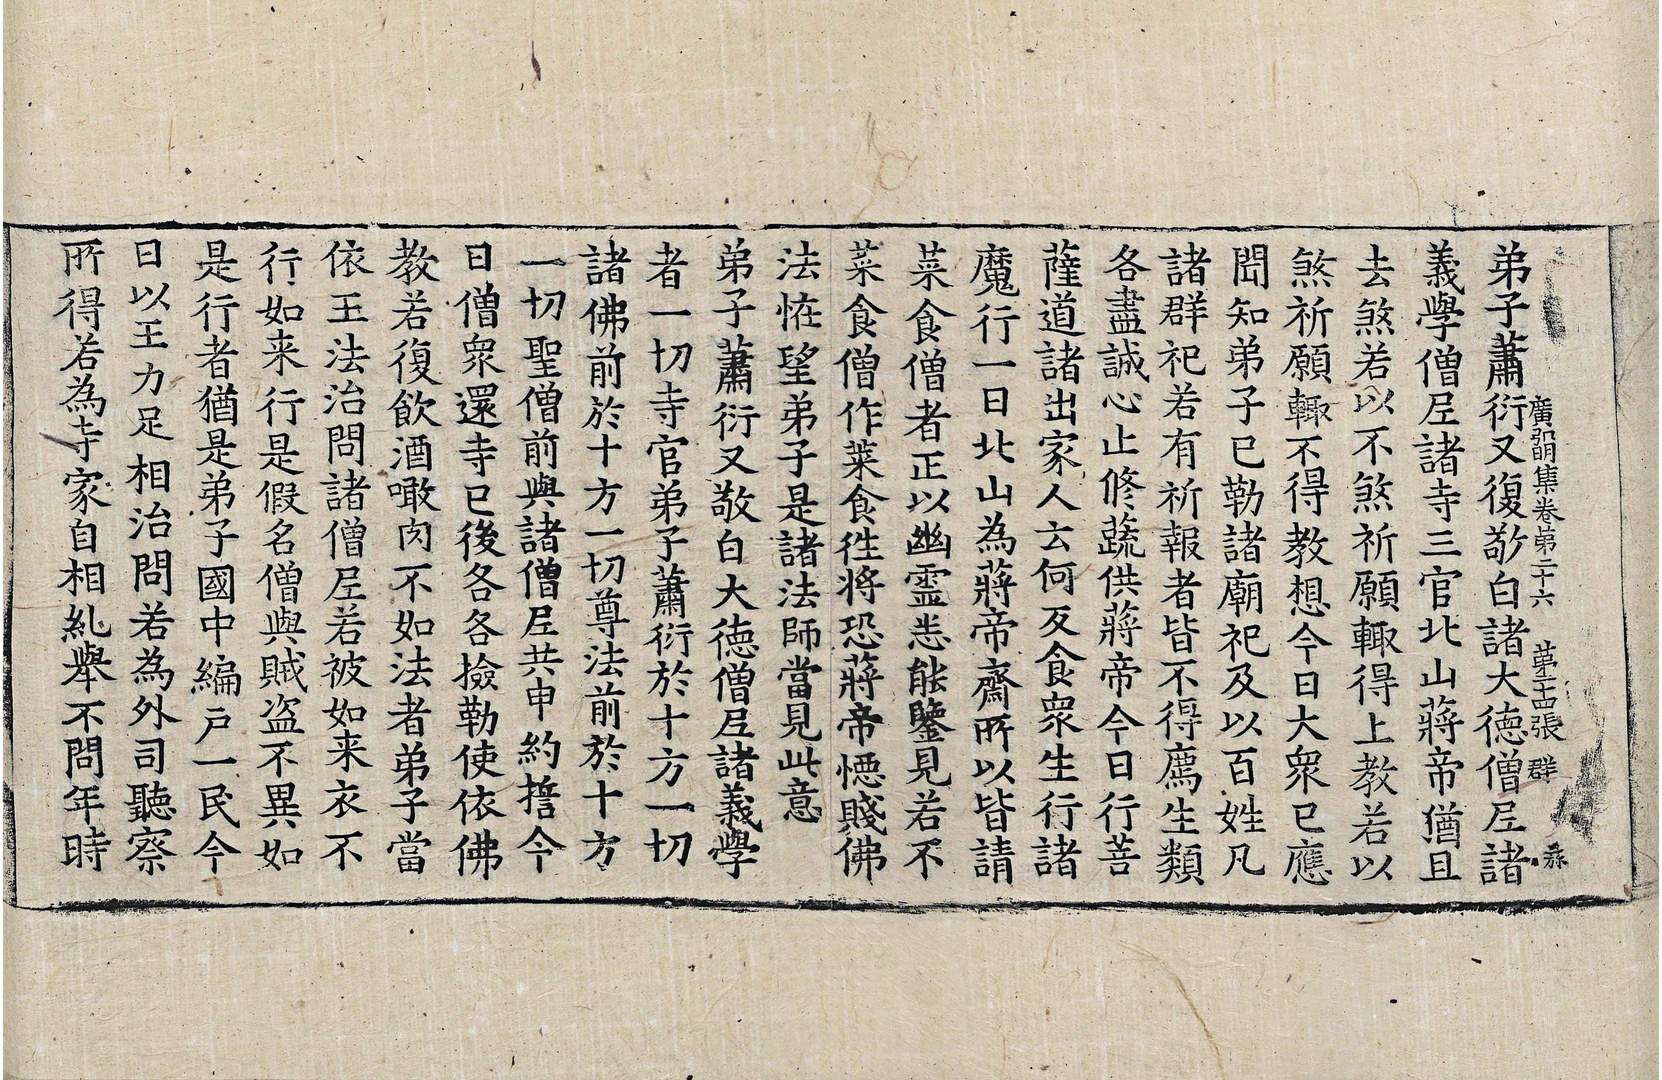 廣弘明集卷第二十六　第十四張　群
弟子蕭衍又復敬白諸大德僧尼諸
義學僧尼諸寺三官北山蔣帝猶且
去煞若以不煞祈願輙得上教若以
煞祈願輙不得教想今日大衆已應
聞知弟子已勒諸廟祀及以百姓凡
諸群祀若有祈報者皆不得薦生類
各盡誠心止修蔬供蔣帝今日行菩
薩道諸出家人云何反食衆生行諸
魔行一日北山為蔣帝齋所以皆請
菜食僧者正以幽靈悉能鑒見若不
菜食僧作菜食往將恐蔣帝惡賤佛
法恠望弟子是諸法師當見此意
弟子蕭衍又敬白大德僧尼諸義學
者一切寺官弟子蕭衍於十方一切
諸佛前於十方一切尊法前於十方
一切聖僧前與諸僧尼共申約誓今
日僧衆還寺已後各各撿勒使依佛
教若復飲酒噉肉不如法者弟子當
依王法治問諸僧尼若被如来衣不
行如来行是假名僧與賊盗不異如
是行者猶是弟子國中編戸一民今
日以王力足相治問若為外司聽察
所得若為寺家自相糺舉不問年時